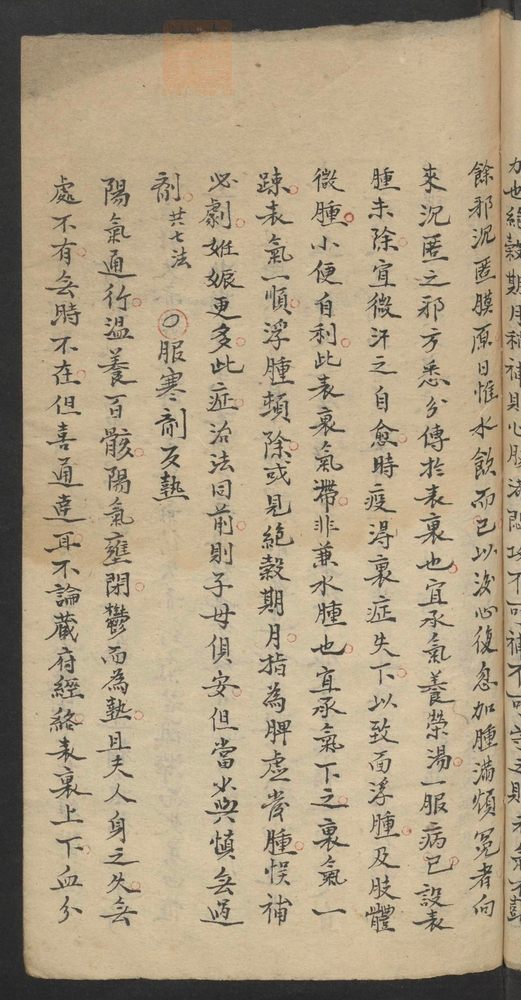 餘邪沉匿膜原日惟水飲而已以後心復忽加腫滿煩冤者向
來沉匿之邪方悉分傳於表裏也宜承氣養榮湯一服病已設表
腫未除宜微汗之自愈時疫淂裏症失下以致面浮腫及肢體
微腫小便自利此表裏氣滯非兼水腫也宜承氣下之裏氣一
踈表氣一順浮腫頓除或見絕穀期月指為脾虛發腫悮補
必劇妊娠更多此症治法同前則子母俱安但當少與慎無過
劑共七法 ○服寒劑反熱
陽氣通行温養百骸陽氣壅閉鬱而為熱且夫人身之火無
處不有無時不在但喜通達耳不論藏府經絡表裏上下血分